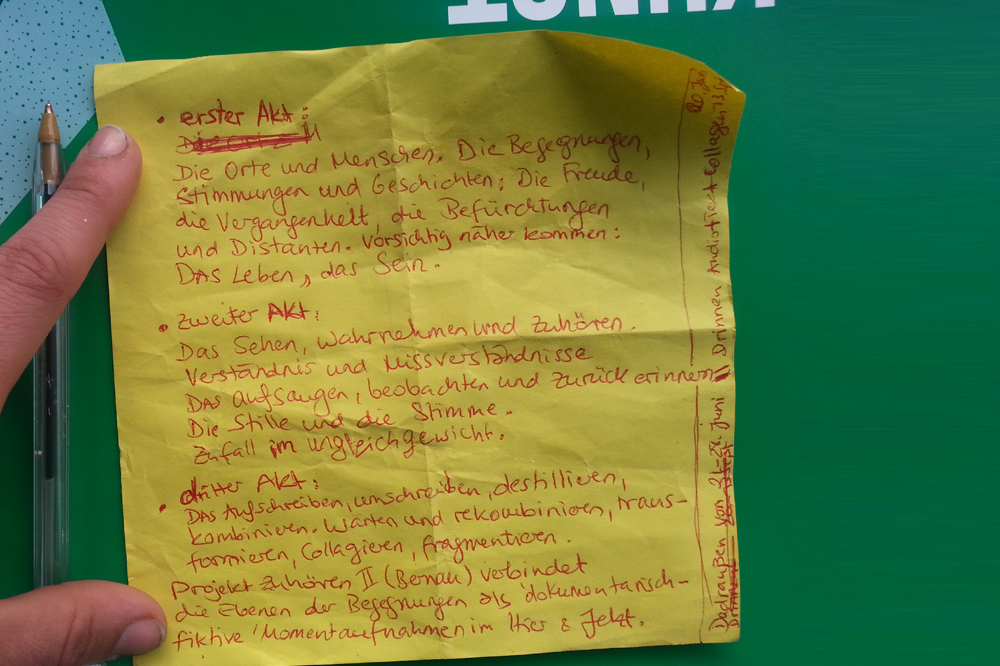 • erster Akt:
Die Orte und Menschen. Die Begegnungen,
Stimmungen und Geschichten; Die Freude,
die Vergangenheit, die Befürchtungen
und Distanten. Vorsichtig näher kommen:
DAS Leben, das Sein.
• zweiter Akt:
Das Sehen, wahrnehmen und zuhören.
Verständnis und Missverständnisse
DAS aufsaugen, beobachten und zurück erinnern
Die Stille und die Stimme.
Zufall im ungleichgewicht.
• dritter Akt:
DAS Aufschreiben, umschreiben, destillieren,
kombinieren. Warten und rekombinieren, trans-
formieren, Collagieren, fragmentieren.
Projekt Zuhören II (Bernau) verbindet
die Ebenen der Begegnungen als 'dokumentarisch-
fiktive' Momentaufnahmen im Hier & Jetzt.
Dadraußen von 21-28. Juni
Drinnen Audiofiction Collagen
20 Jun